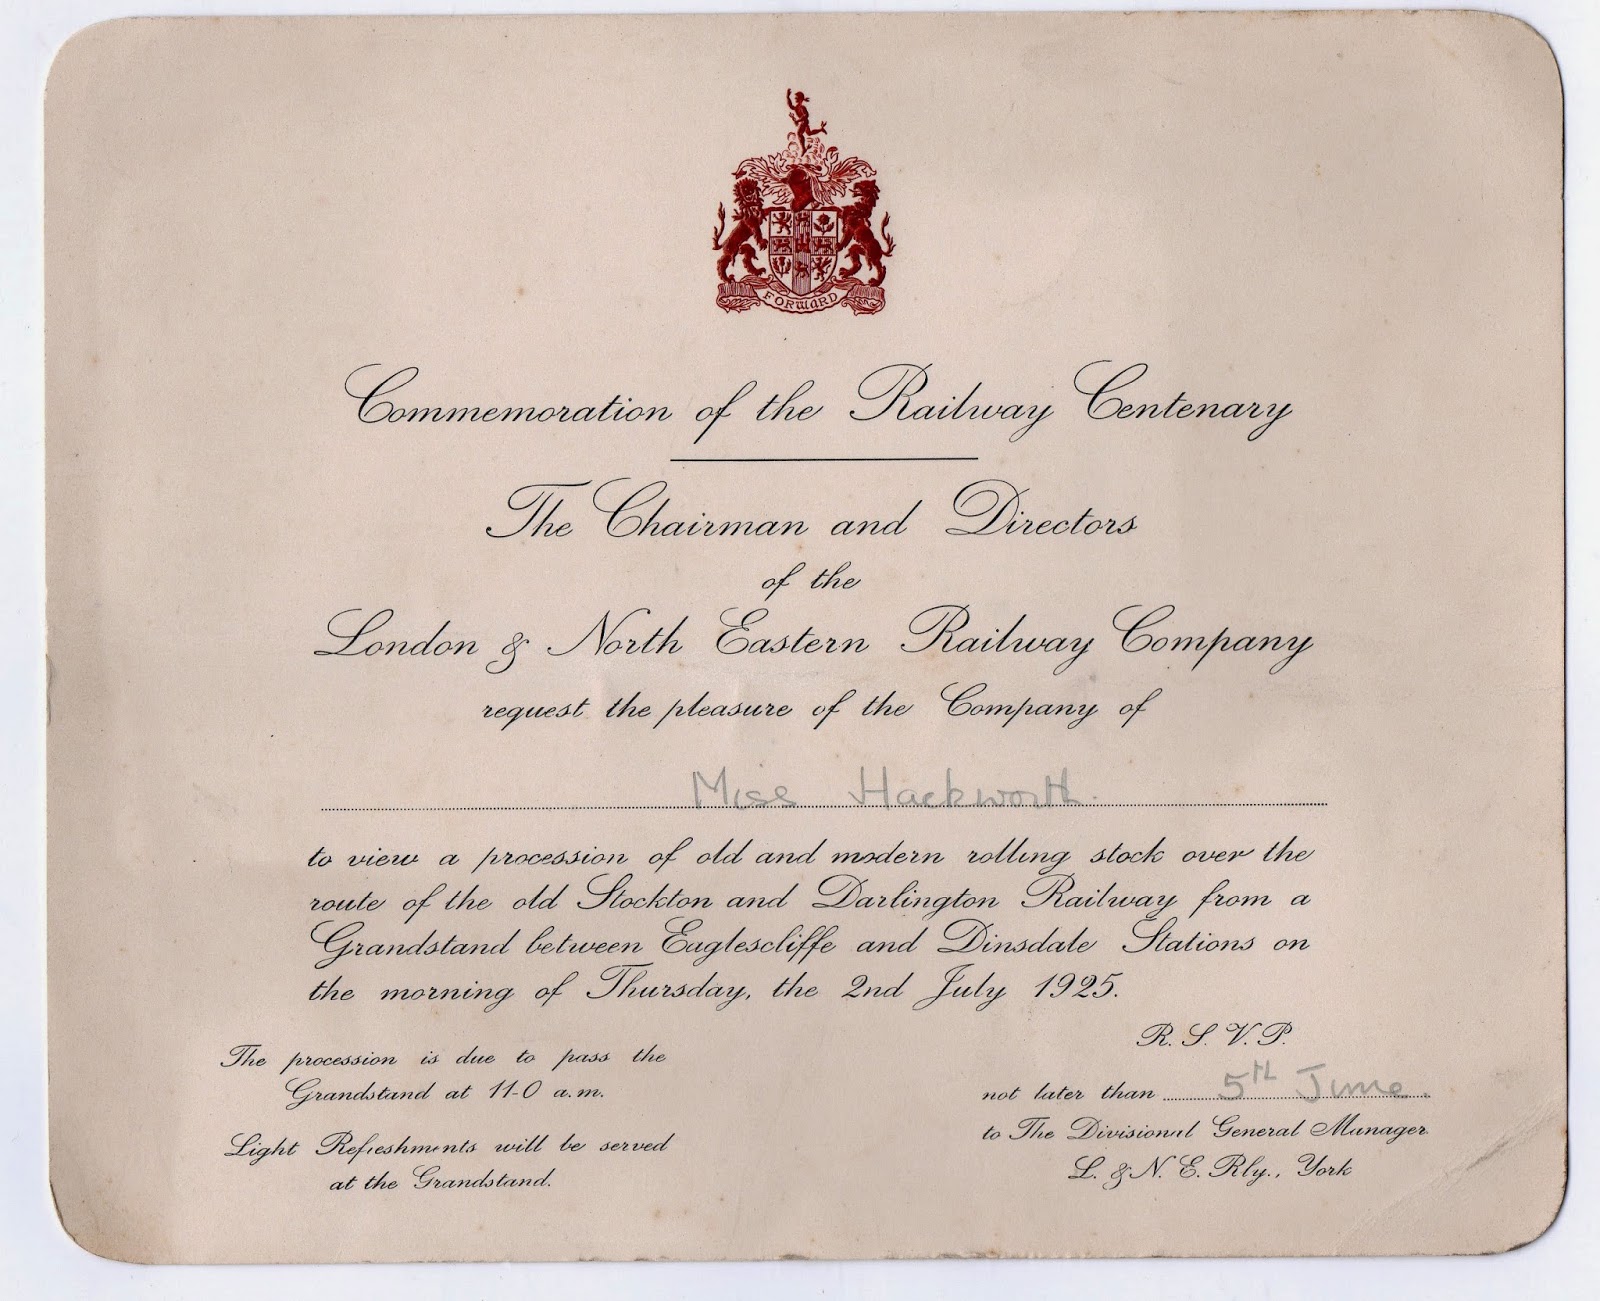 FORWARD
Commemoration of the Railway Centenary
The Chairman and Directors
of the
London & North Eastern Railway Company
request the pleasure of the Company of
Miss Hackworth.
to view a procession of old and modern rolling stock over the
route of the old Stockton and Darlington Railway from a
Grandstand between Eaglescliffe and Dinsdale Stations on
the morning of Thursday, the 2nd July 1925.
The procession is due to pass the
Grandstand at 11-0 a.m.
Light Refreshments will be served
at the Grandstand.
R. S. V. P.
not later than 5TH June.
to The Divisional General Manager
L. & N. E. Rly., York